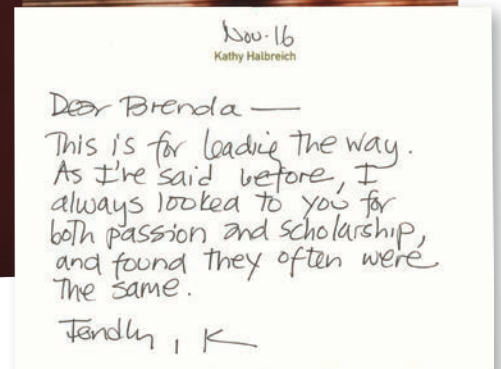 Nov. 16
Kathy Halbreich
Dear Brenda —
This is for leading the way.
As I've said before, I
always looked to you for
both passion and scholarship,
and found they often were
the same.
Fondly, K